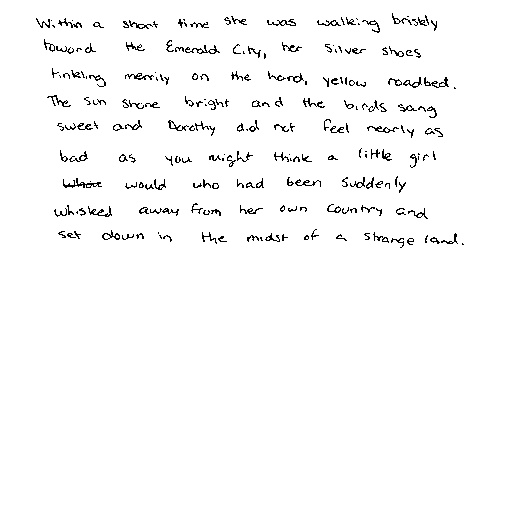 Within a short time she was walking briskly
toward the Emerald City, her Silver Shoes
tinkling merrily on the hard, yellow roadbed.
The sun shone bright and the birds sang
sweet and Dorothy did not feel nearly as
bad as you might think a little girl
would who had been suddenly
whisked away from her own country and
set down in the midst of a strange land.